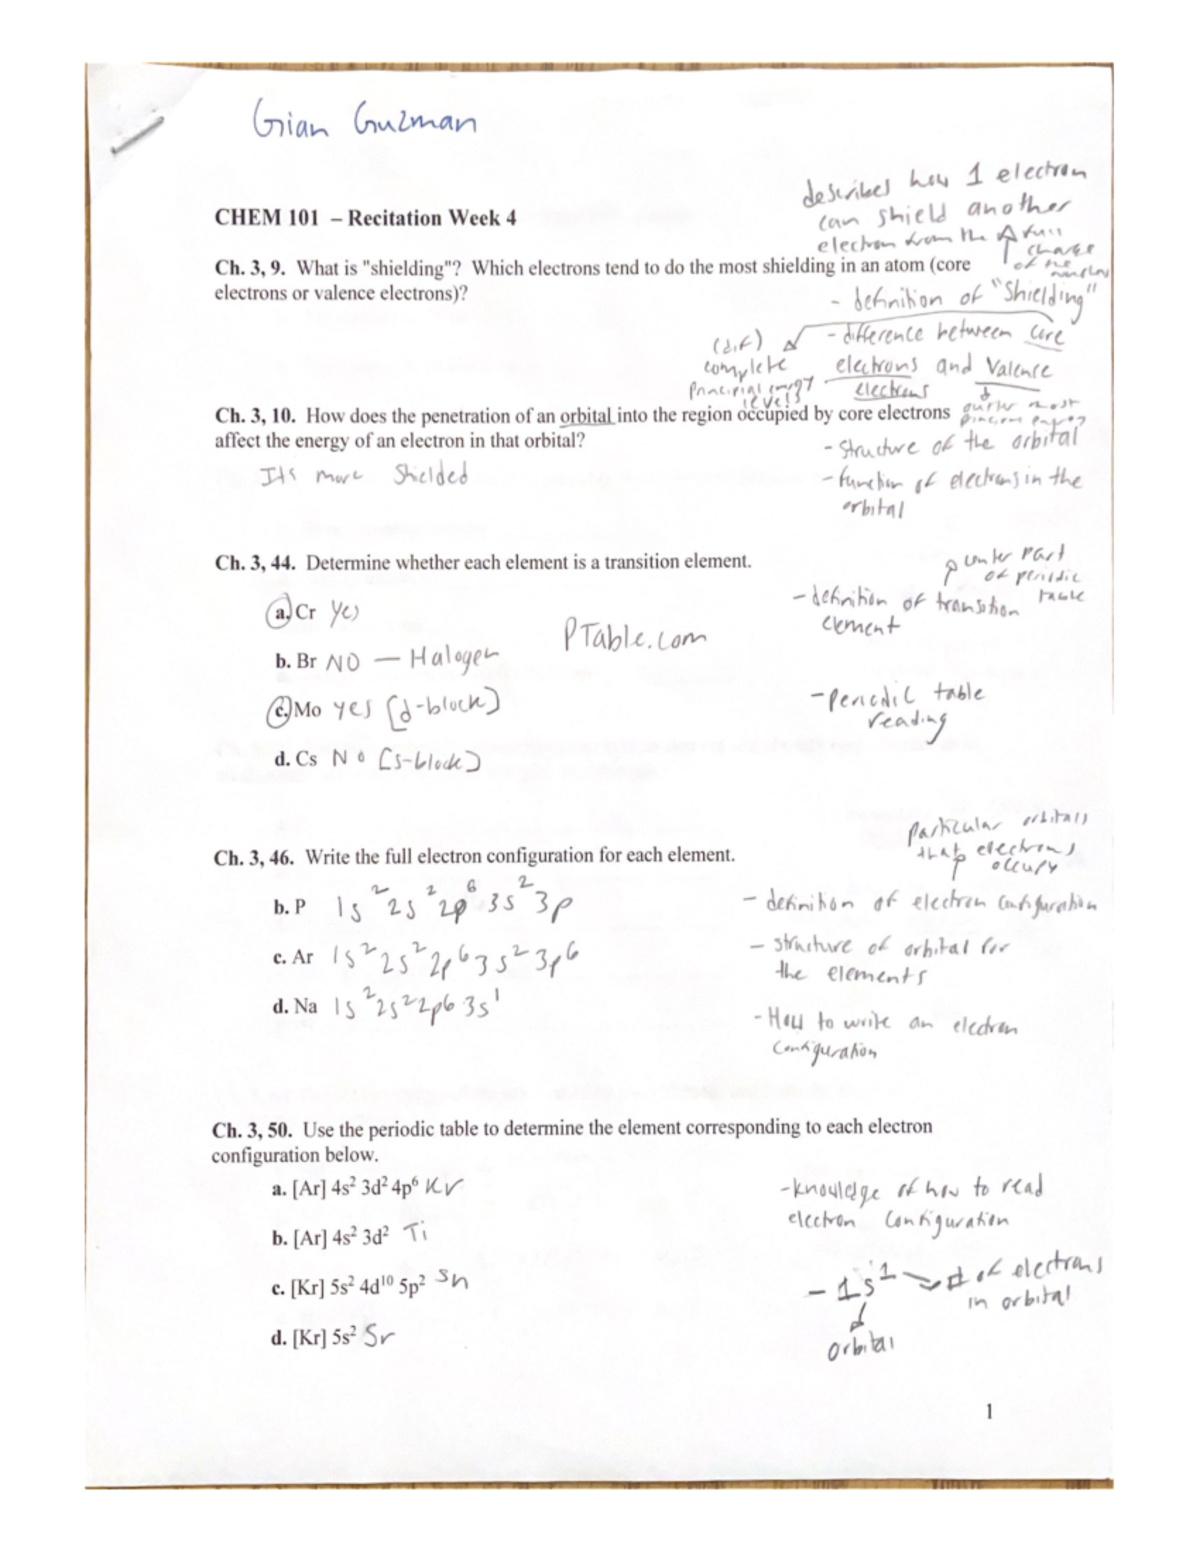 Gian Guzman
describes how 1 electron
can shield another
electron from the full
charge
of the
CHEM 101 – Recitation Week 4
Ch. 3, 9. What is "shielding"? Which electrons tend to do the most shielding in an atom (core
electrons or valence electrons)?
- definition of "Shielding"
- difference between core
electrons and valence
electrons
(dif)
complete
levels
outer most
Ch. 3, 10. How does the penetration of an orbital into the region occupied by core electrons
affect the energy of an electron in that orbital?
Its more Shielded
- structure of the orbital
- function of electrons in the
orbital
Ch. 3, 44. Determine whether each element is a transition element.
part
of periodic
table
- definition of transition
element
a. Cr yes
PTable.com
b. Br NO — Halogen
c. Mo yes [d-block]
- periodic table
reading
d. Cs No [s-block]
particular orbitals
that electrons
occupy
Ch. 3, 46. Write the full electron configuration for each element.
b. P 1s² 2s² 2p⁶ 3s² 3p
- definition of electron configuration
c. Ar 1s² 2s² 2p⁶ 3s² 3p⁶
- structure of orbital for
the elements
d. Na 1s² 2s² 2p6 3s¹
- How to write an electron
configuration
Ch. 3, 50. Use the periodic table to determine the element corresponding to each electron
configuration below.
a. [Ar] 4s² 3d² 4p⁶ Kr
- knowledge of how to read
electron configuration
b. [Ar] 4s² 3d² Ti
c. [Kr] 5s² 4d¹⁰ 5p² Sn
- 1s¹ # of electrons
in orbital
orbital
d. [Kr] 5s² Sr
1